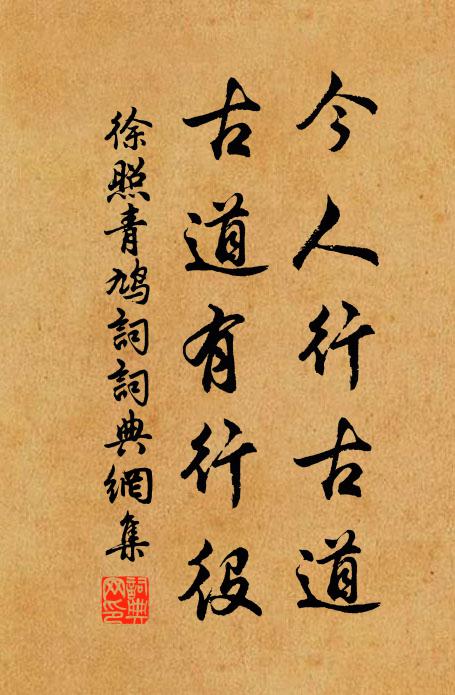 今人行古道
古道有行役
徐照青鳩詞詞典網集
詞典網印